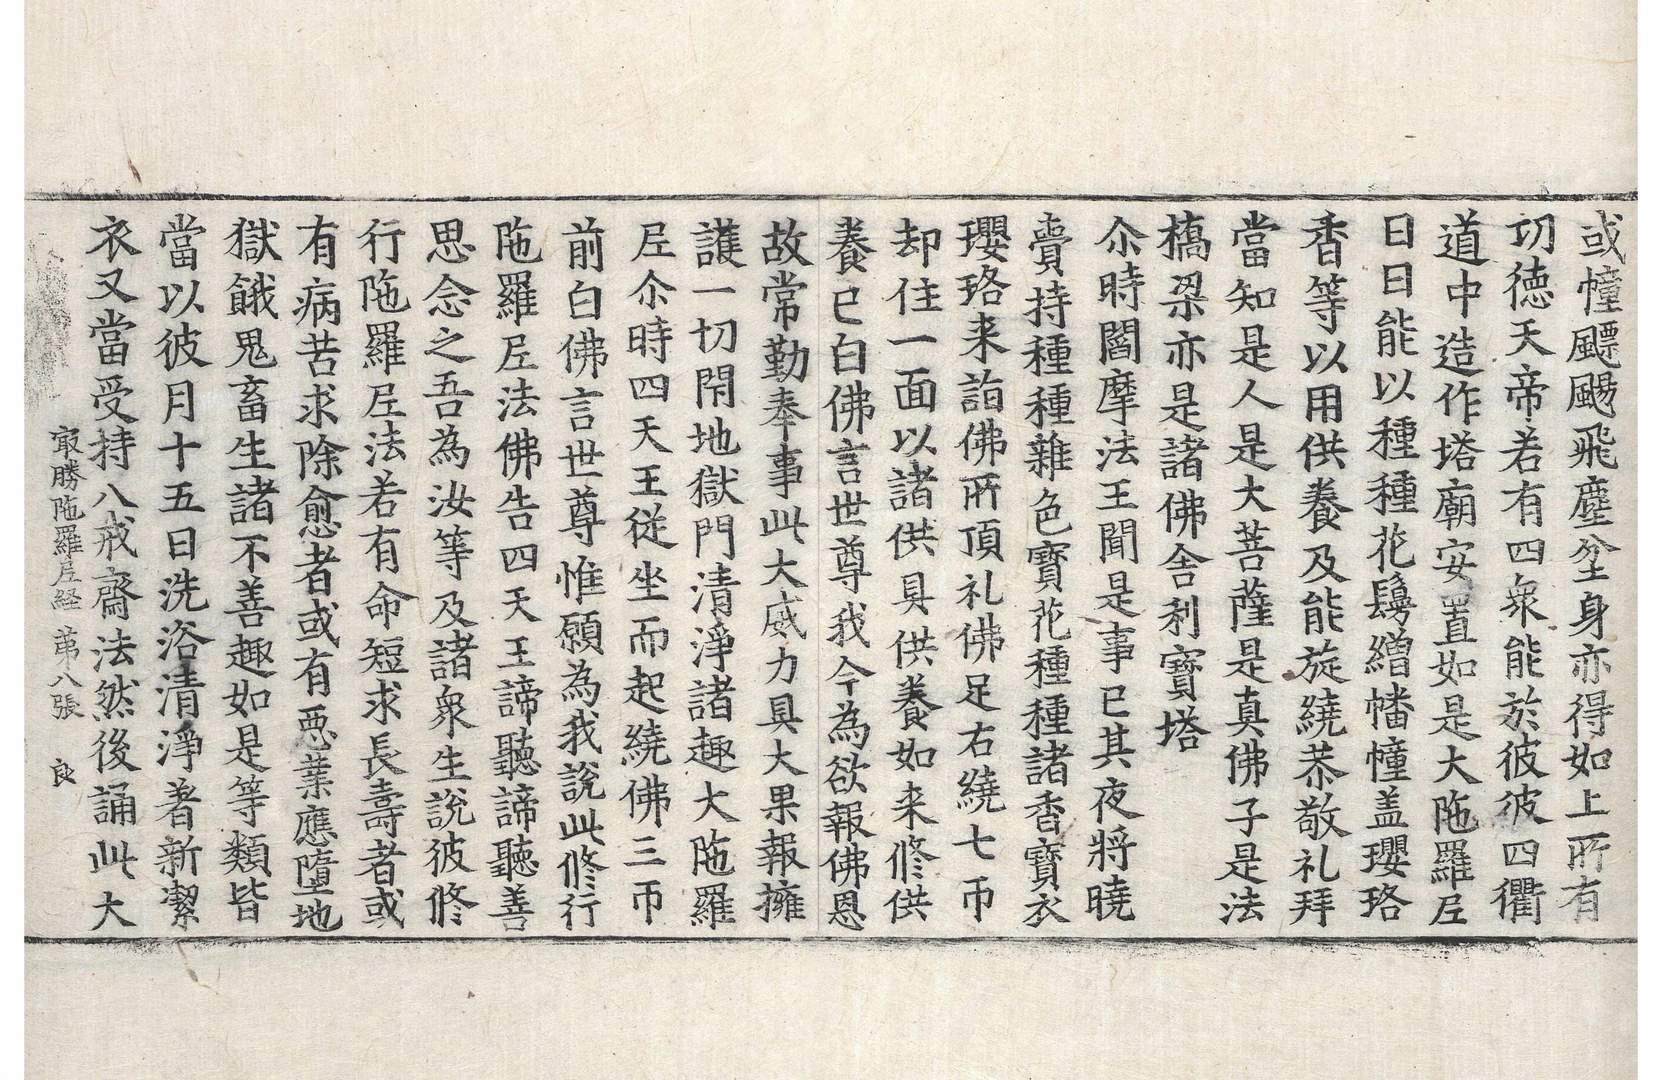 或幢飃颺飛塵坌身亦得如上所有
切德天帝若有四衆能於彼彼四衢
道中造作塔廟安置如是大陁羅𡰱
日日能以種種花鬘繒幡幢盖瓔珞
香等以用供養及能旋繞恭敬礼拜
當知是人是大菩薩是真佛子是法
橋梁亦是諸佛舍利寶塔
尒時閻摩法王聞是事已其夜將曉
賷持種種雜色寶花種種諸香寶衣
瓔珞来詣佛所頂礼佛足右繞七帀
却住一面以諸供具供養如来修供
養已白佛言世尊我今為欲報佛恩
故常勤奉事此大威力具大果報擁
護一切閇地獄門清淨諸趣大陁羅
𡰱尒時四天王從坐而起繞佛三帀
前白佛言世尊惟願為我說此修行
陁羅𡰱法佛告四天王諦聽諦聽善
思念之吾為汝等及諸衆生說彼修
行陁羅𡰱法若有命短求長壽者或
有病苦求除愈者或有惡業應墮地
獄餓鬼畜生諸不善趣如是等類皆
當以彼月十五日洗浴清淨著新潔
衣又當受持八戒齋法然後誦此大
㝡勝陁羅𡰱経 苐八張 良